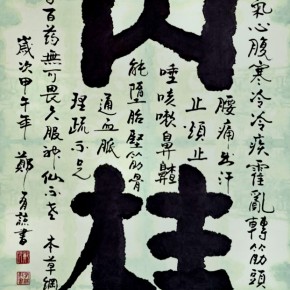 氣心腹寒冷冷疾霍亂轉筋頭
腰痛出汗
止煩止
唾咳嗽鼻齆
肉桂
能墮胎堅筋骨
通血脈
理疏不足
百藥無所畏久服神仙不老 本草綱
歲次甲午年 鄭有 書